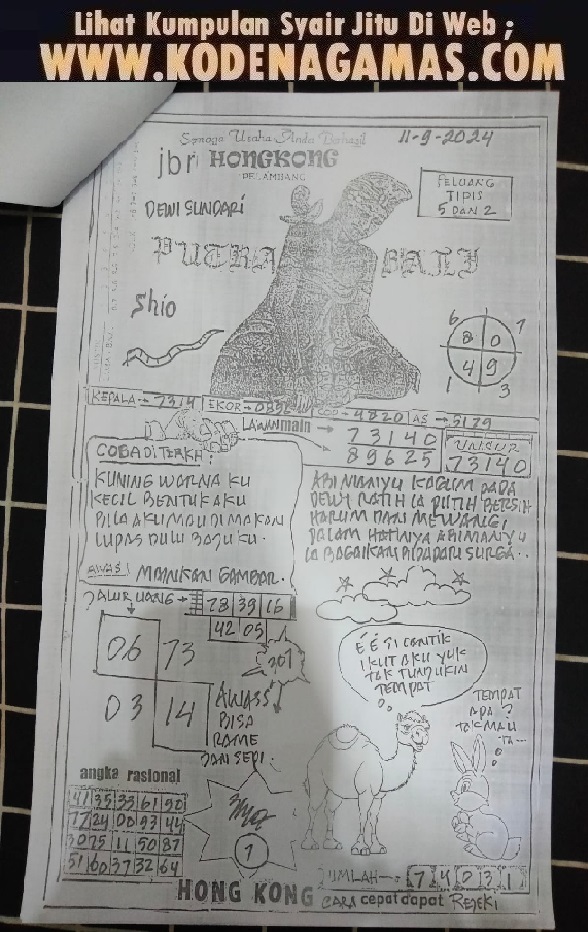 Lihat Kumpulan Syair Jitu Di Web ;
WWW.KODENAGAMAS.COM
Semoga Usaha Anda Berhasil
11-9-2024
jbr HONGKONG
PELAMBANG
PELUANG
TIPIS
5 DAN 2
DEWI SUNDARI
PUTRA BALI
Shio
6 7
8 0
4 9
1 3
KEPALA → 7314
EKOR → 0896
COP → 4820
AS → 3179
LAWAN main →
73140
89625
UNSUR
73140
COBA DITERKA :
KUNING WARNA KU
KECIL BENTUK AKU
BILA AKU MAU DI MAKAN
LUPAS DULU BAJUKU.
AWAS! MAINKAN GAMBAR.
ABIMANYU KAGUM PADA
DEWI RATIH IA PUTIH BERSIH
HARUM DAN MEWANGI,
DALAM HATINYA ABIMANYU
IA BAGAIKAN BIDADARI SURGA..
JALUR UANG → 28 39 16
42 05
06 73
03 14
AWASS
BISA
RAME
DAN SEPI.
E E SI CANTIK
IKUT AKU YUK
TAK TUNJUKIN
TEMPAT
TEMPAT
APA ?
TAK MAU
TA---
angka rasional
41 35 33 61 90
77 24 00 93 44
30 75 11 50 87
51 60 37 32 64
1
JUMLAH → 7 4 0 3 1
HONG KONG
CARA cepat dapat REJEKI